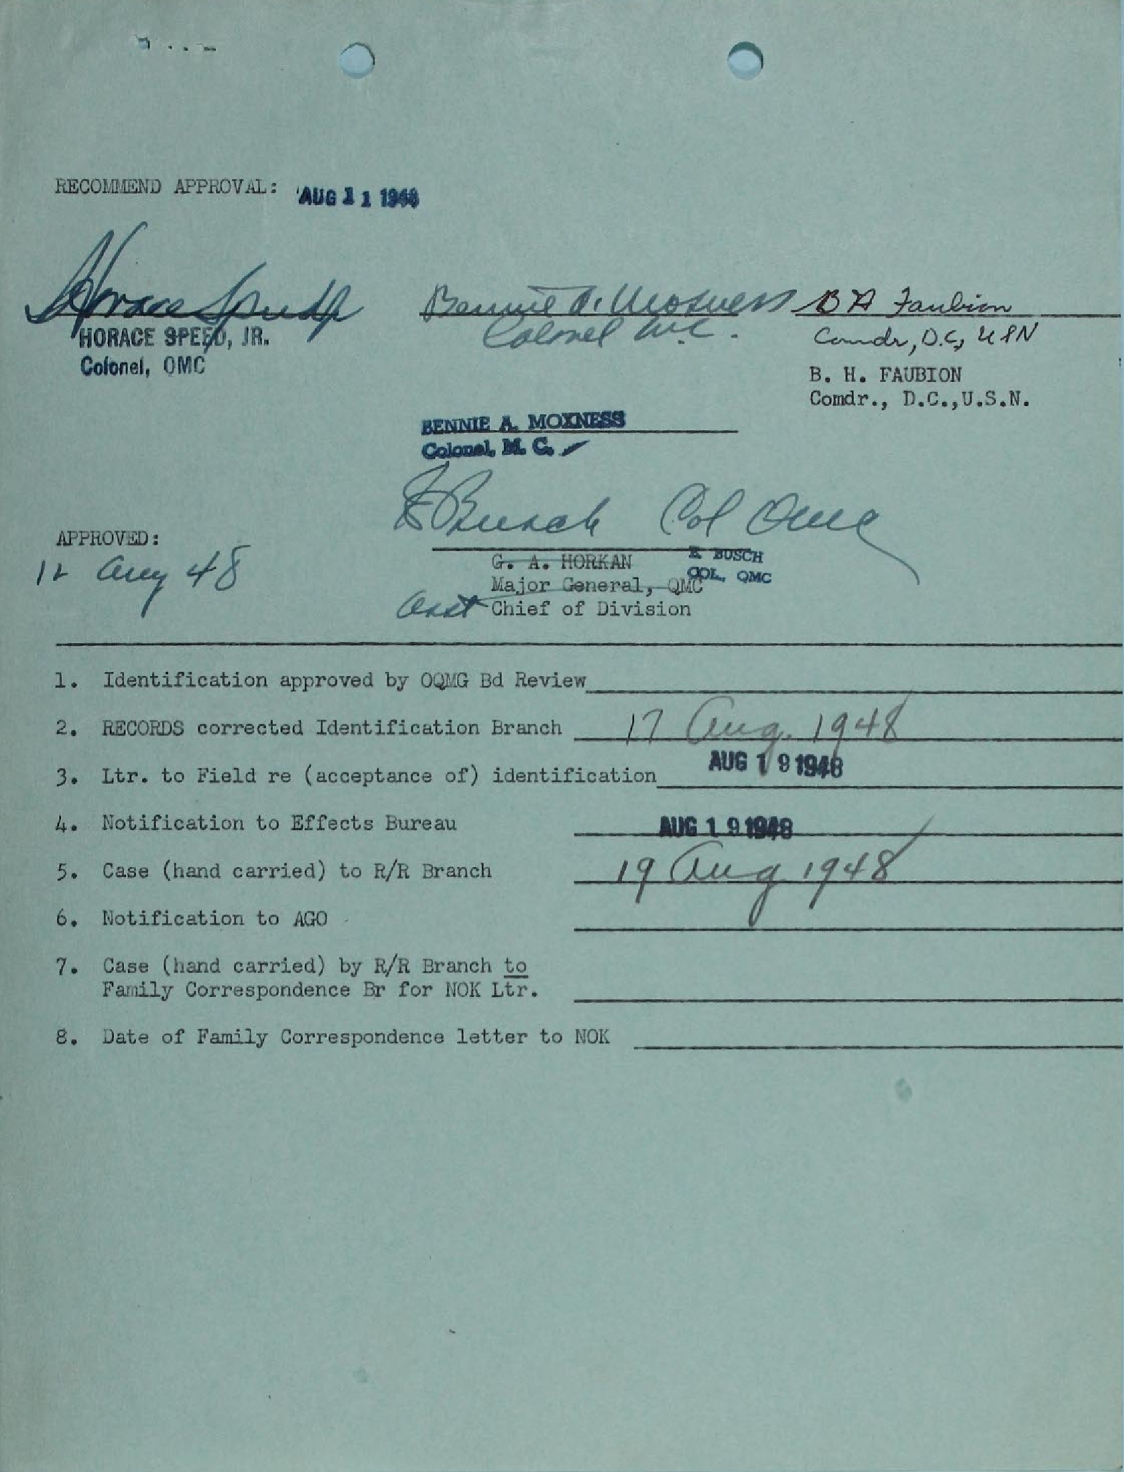 RECOMMEND APPROVAL: AUG 11 1948
Horace Speed Jr
HORACE SPEED, JR.
Colonel, QMC
Bennie A. Moxness
Colonel M.C.
B H Faubion
Comdr, D.C, USN
B. H. FAUBION
Comdr., D.C.,U.S.N.
BENNIE A. MOXNESS
Colonel, M. C.
E Busch Col QMC
APPROVED:
12 Aug 48
G. A. HORKAN E. BUSCH
Major General, QMC COL, QMC
Asst Chief of Division
1. Identification approved by OQMG Bd Review
2. RECORDS corrected Identification Branch 17 Aug. 1948
3. Ltr. to Field re (acceptance of) identification AUG 19 1948
4. Notification to Effects Bureau AUG 19 1948
5. Case (hand carried) to R/R Branch 19 Aug 1948
6. Notification to AGO
7. Case (hand carried) by R/R Branch to
Family Correspondence Br for NOK Ltr.
8. Date of Family Correspondence letter to NOK